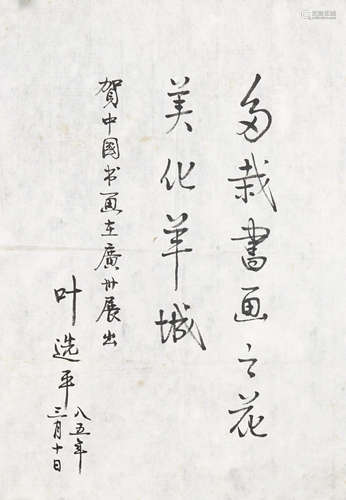 多栽书画之花
美化羊城
贺中國书画在廣州展出
叶选平
八五年
三月十日